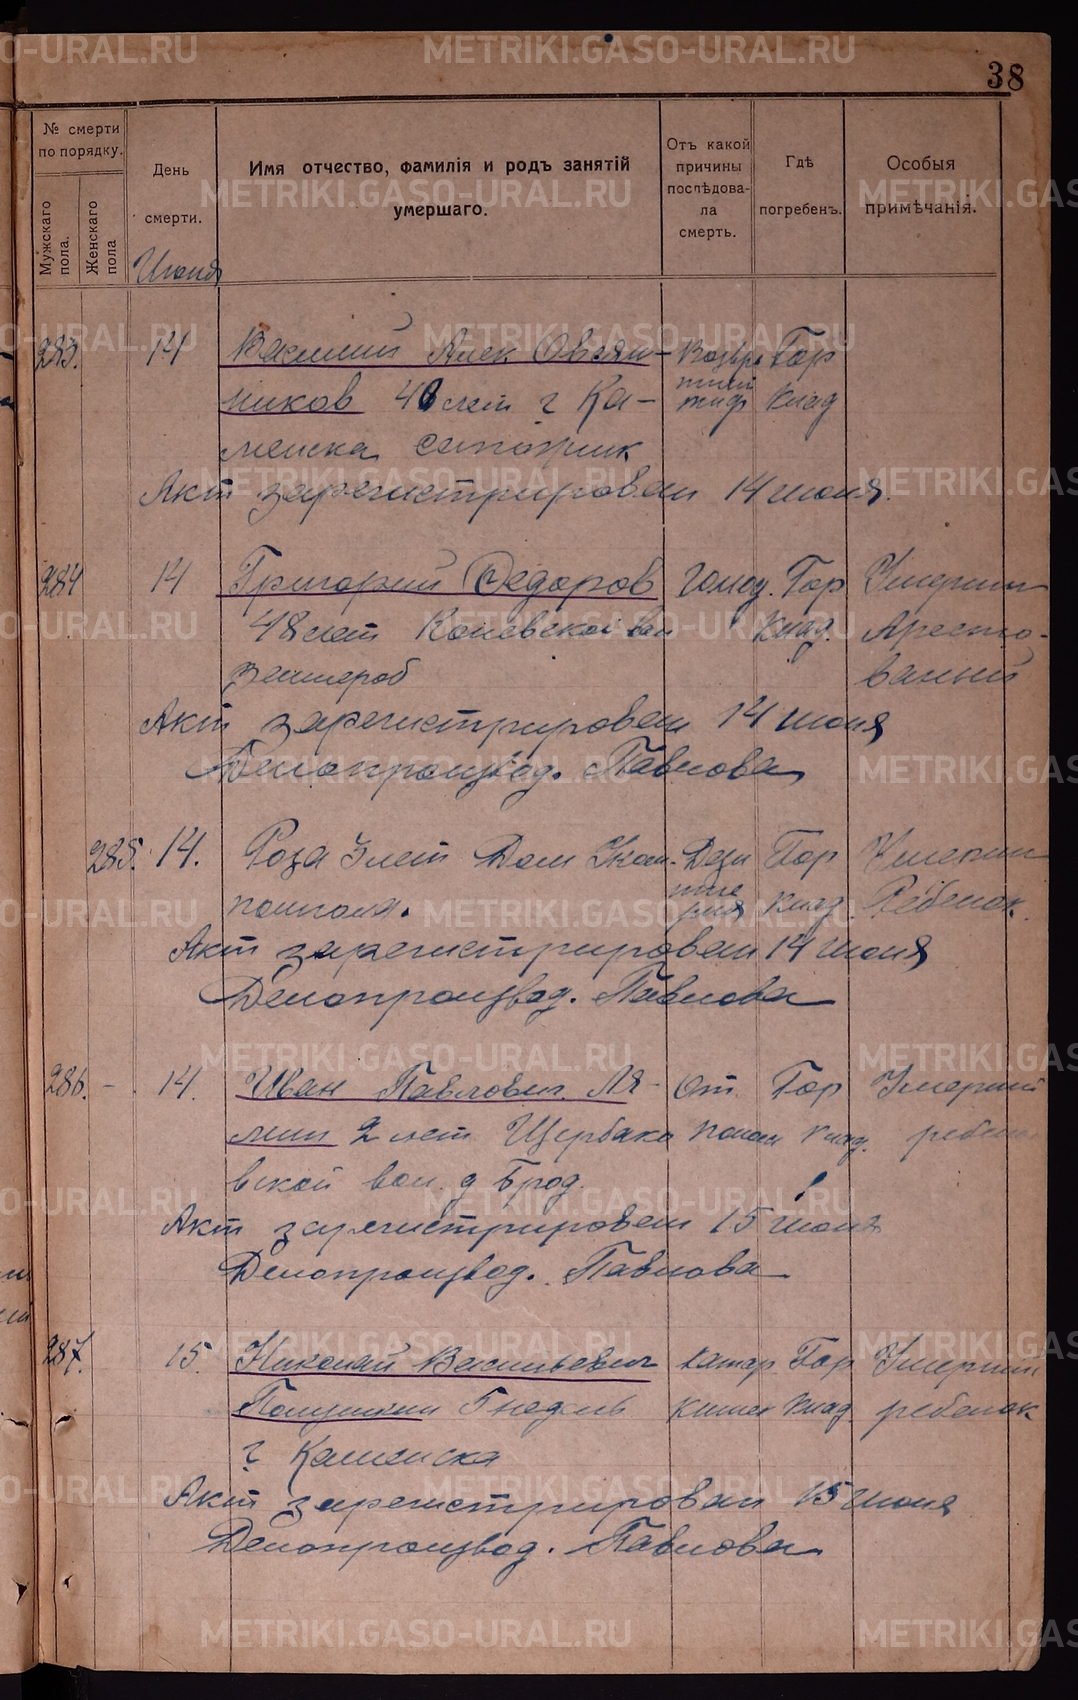 38
№ смерти по порядку.
Мужскаго пола.
Женскаго пола
День смерти.
Имя отчество, фамилія и родъ занятій умершаго.
Отъ какой причины послѣдовала смерть.
Гдѣ погребенъ.
Особыя примѣчанія.
Июня
283. 14 Василий Алек Овсян- Возвра Гор
ников 48 лет г Ка- тный тиф Клад
менска сапожник
Акт зарегистрирован 14 июня.
284 14 Григорий Федоров Голод. Гор Умерший
48 лет Коневской вол Клад. Аресто-
Землероб ванный
Акт зарегистрирован 14 июня
Делопроизвод. Павлова
285. 14. Роза 3 лет Дом Дизи Гор
нте рия Клад Ребенок.
Акт зарегистрирован 14 июня
Делопроизвод. Павлова
286. - 14. Иван Павлович Ля- От. Гор Умерший
мин 2 лет Щербако понос Клад. ребено
вской вол. д Брод.
Акт зарегистрирован 15 июня
Делопроизвод. Павлова
287. 15 Николай Васильевич Катар Гор Умерший
недель кишек Клад ребенок
г Каменска
Акт зарегистрирован 15 июня
Делопроизвод. Павлова
METRIKI.GASO-URAL.RU